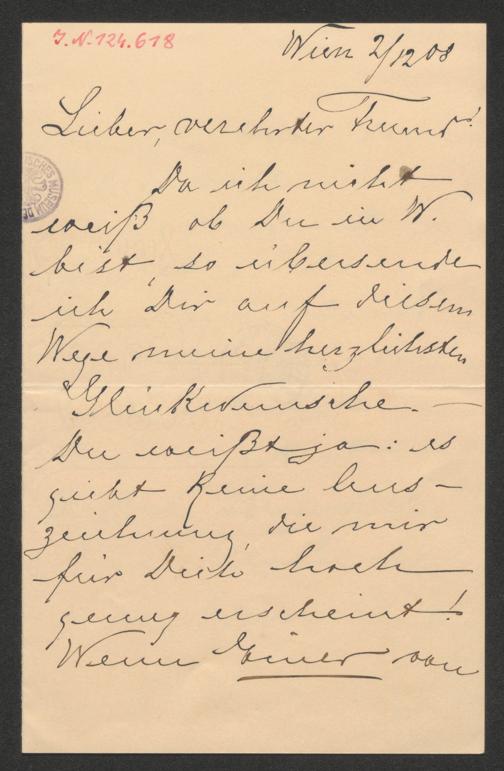 J.N. 124.618
Wien 2/12 08
Lieber, verehrter Freund!
Da ich nicht
weiß ob Du in W.
bist, so übersende
ich Dir auf diesem
Wege meine herzlichsten
Glückwünsche. —
Du weißt ja: es
giebt keine Aus-
zeichnung, die mir
für Dich hoch
genug erscheint!
Wenn Einer von